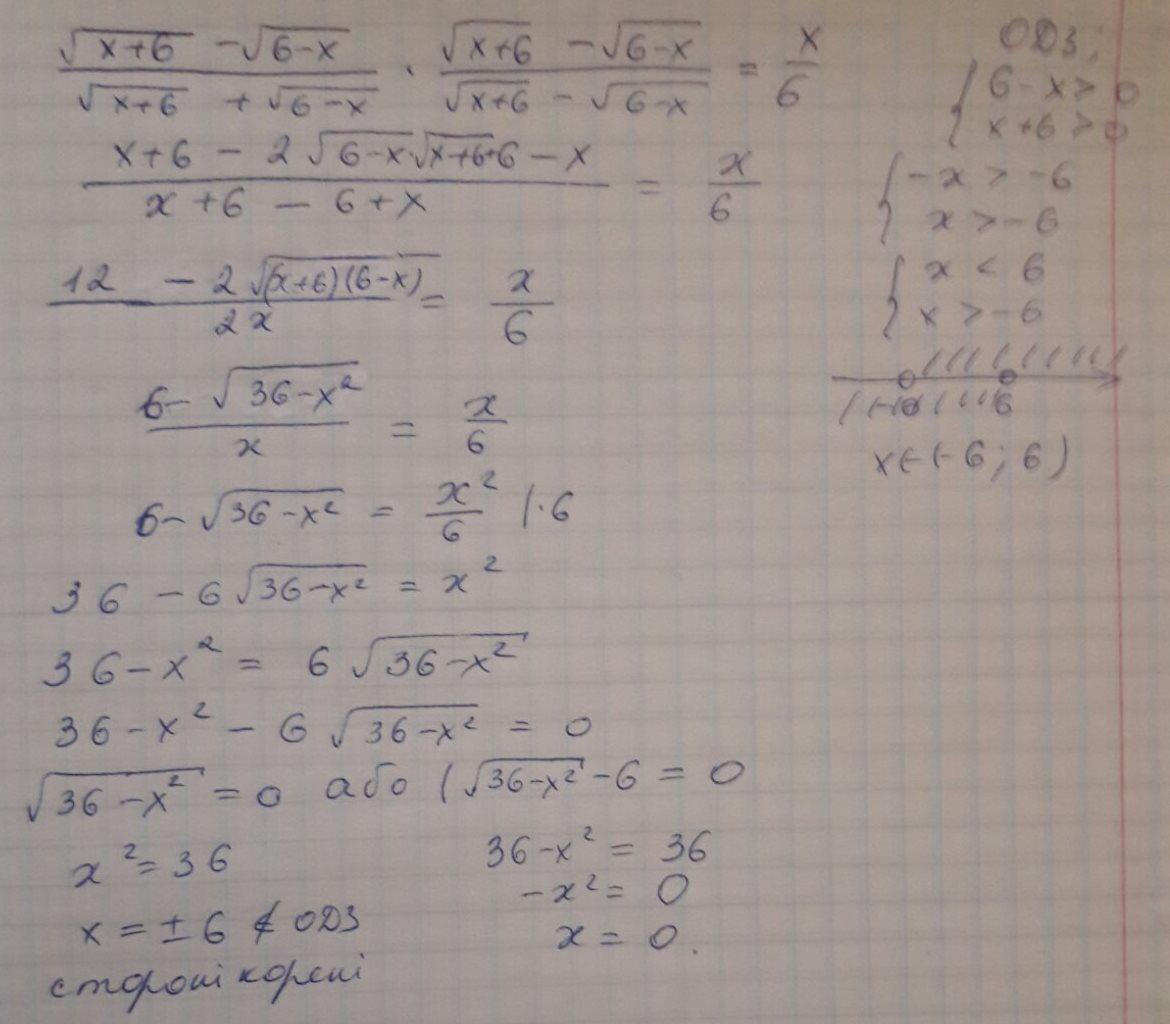 (√(x+6) - √(6-x))/(√(x+6) + √(6-x)) · (√(x+6) - √(6-x))/(√(x+6) - √(6-x)) = x/6
(x+6 - 2√(6-x)·√(x+6)+6-x)/(x+6 - 6+x) = x/6
(12 - 2√((x+6)(6-x)))/(2x) = x/6
(6-√(36-x²))/x = x/6
6-√(36-x²) = x²/6 |·6
36 - 6√(36-x²) = x²
36-x² = 6√(36-x²)
36-x² - 6√(36-x²) = 0
√(36-x²) = 0 або (√(36-x²) -6 = 0
x² = 36
x = ±6 ∉ ОДЗ
сторонні корені
36-x² = 36
-x² = 0
x = 0.
ОДЗ:
{ 6-x > 0
x+6 > 0
{ -x > -6
x > -6
{ x < 6
x > -6
-6 6
x∈(-6; 6)